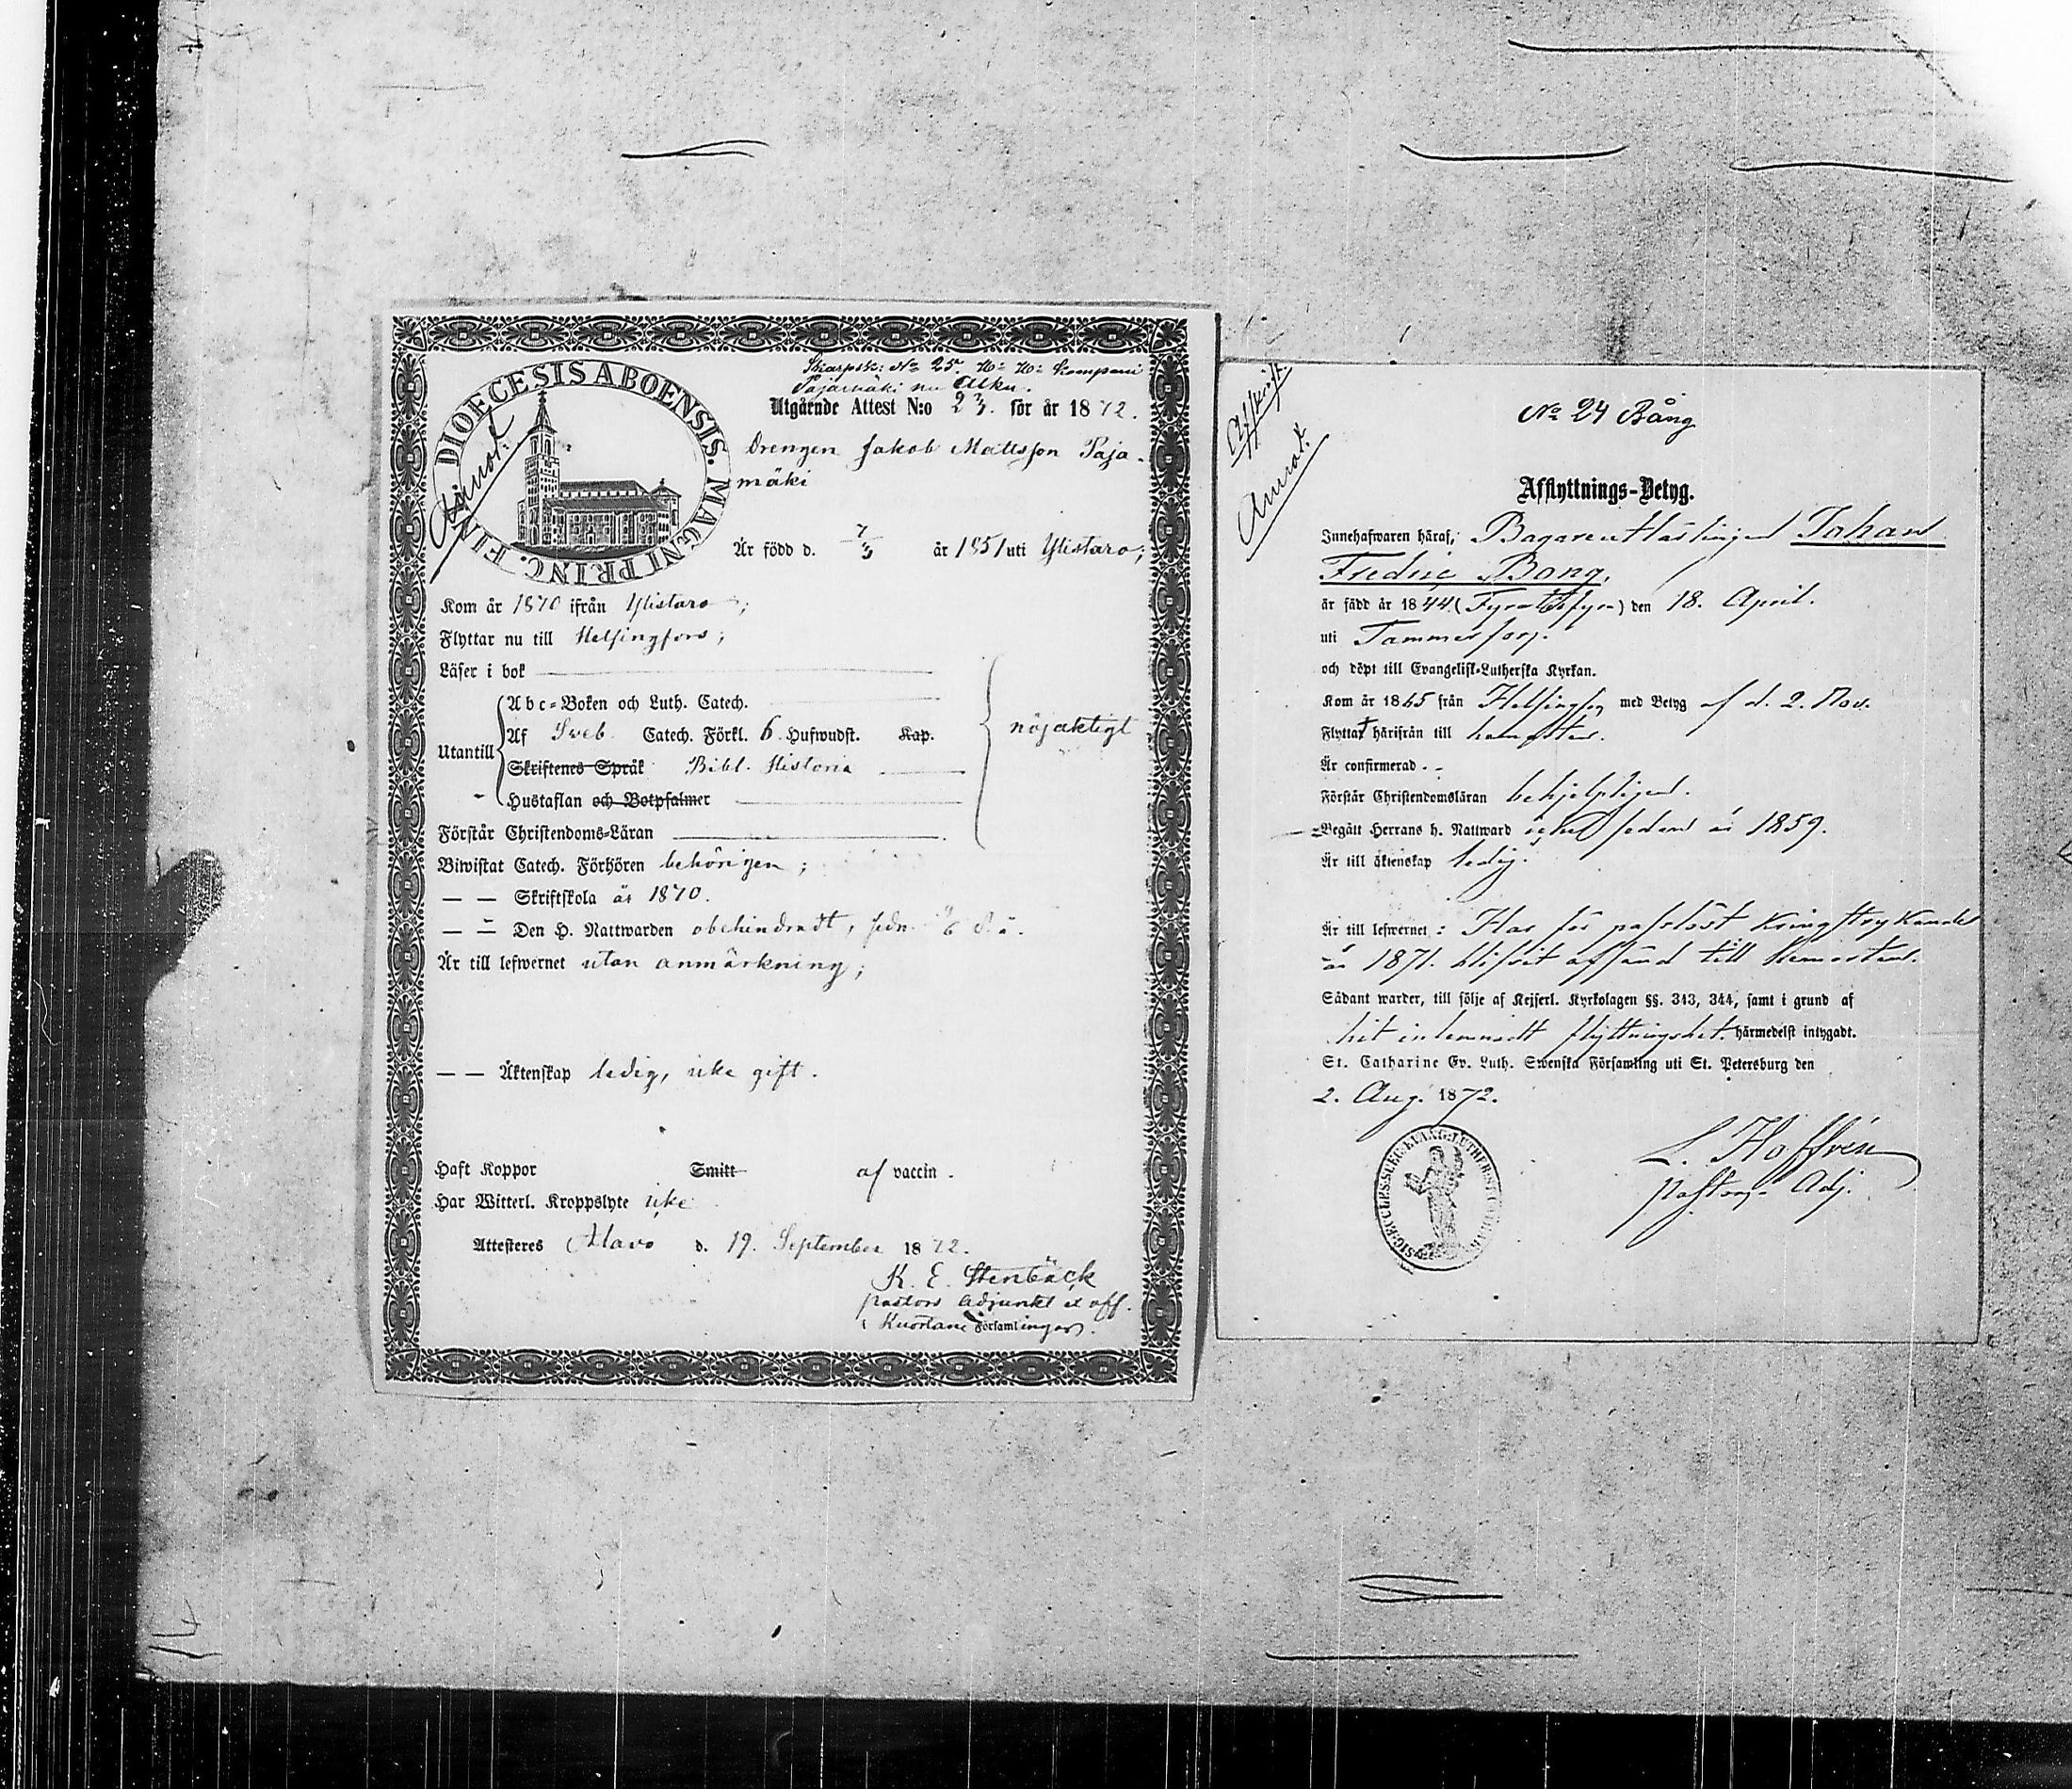 DIOECESIS ABOENSIS. MAGNI PRINC. FINL.
Annot.
Skarpsk: No 25. Kompani
Pajamäki nu Alku.
Utgårnde Attest N:o 23. för år 1872.
Drengen Jakob Mattsson Paja-
mäki
Är född d. 7/3 år 1851 uti Ylistaro;
Kom år 1870 ifrån Ylistaro;
Flyttar nu till Helsingfors;
Läser i bok
Abc-Boken och Luth. Catech.
Utantill Af Sveb. Catech. Förkl. 6 Hufwudst. Kap. nöjaktigt
Skriftenes Språk Bibl. Historia
Hustaflan och Botpsalmer
Förstår Christendoms-Läran
Biwistat Catech. Förhören behörigen;
— — Skriftskola år 1870.
— — Den H. Nattwarden obehindradt, sedn.
Är till lefwernet utan anmärkning;
— — Äktenskap ledig, icke gift.
Haft Koppor Smitt af vaccin.
Har Witterl. Kroppslyte icke
Attesteres Alavo d. 19. September 1872.
K. E. Stenbäck
pastors adjunkt et off.
i Kuortane Församlingen.
Afskrift
Annot.
No 24 Bång
Afflyttnings-Betyg.
Innehafwaren häraf, Bagarenlärlingen Johan
Fredric Bong,
är född år 1844 (Fyratifyra) den 18. April.
uti Tammerfors.
och döpt till Evangelisk-Lutherska Kyrkan.
Kom år 1865 från Helsingfors med Betyg af d. 2. Nov.
Flyttat härifrån till hemorten.
Är confirmerad.
Förstår Christendomsläran behjelpligen.
Begått Herrans h. Nattward icke sedan år 1859.
Är till äktenskap ledig.
Är till lefwernet: Har för passlöst kringstrykande
år 1871. blifvit afsänd till hemorten.
Sådant warder, till följe af Kejserl. Kyrkolagen §§. 343, 344, samt i grund af
hit inlemnadt flyttningsbet. härmedelst intygadt.
St. Catharine Ev. Luth. Swenska Församling uti St. Petersburg den
2. Aug. 1872.
L. Hoffrén
Pastors-Adj.